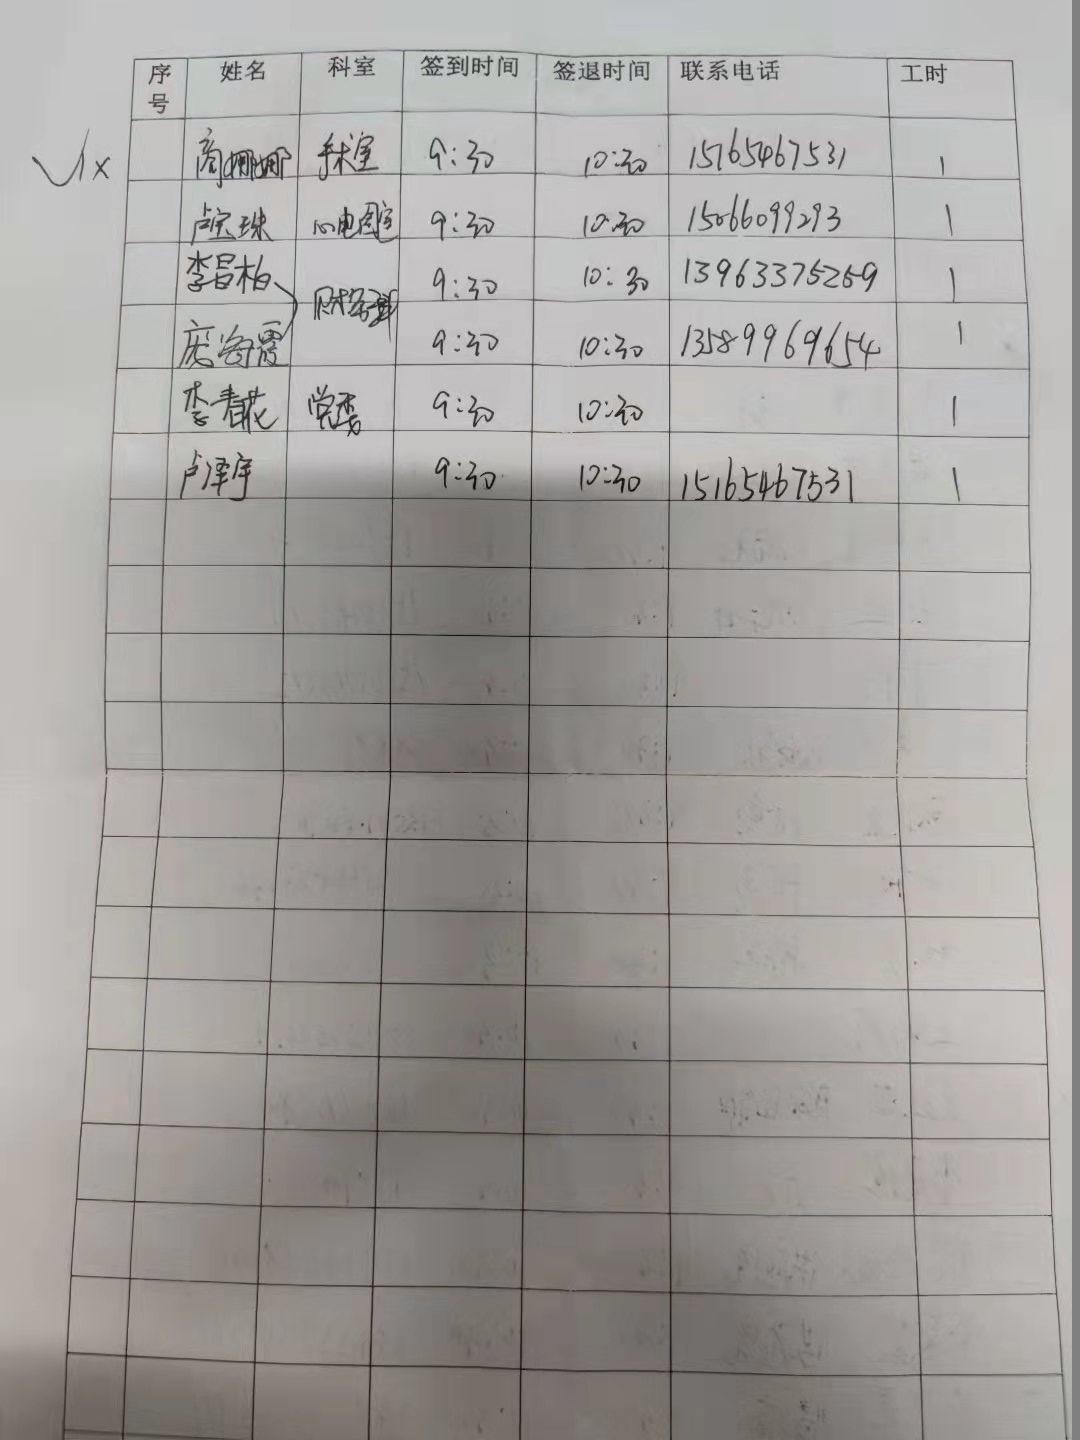 序号 姓名 科室 签到时间 签退时间 联系电话 工时
商姗娜 手术室 9:30 10:30 15165467531 1
卢宝珠 心电图室 9:30 10:30 15066099293 1
李昌柏 财务部 9:30 10:30 13963375259 1
庞海霞 9:30 10:30 13589969654 1
李春花 党委 9:30 10:30 1
卢泽宇 9:30 10:30 15165467531 1